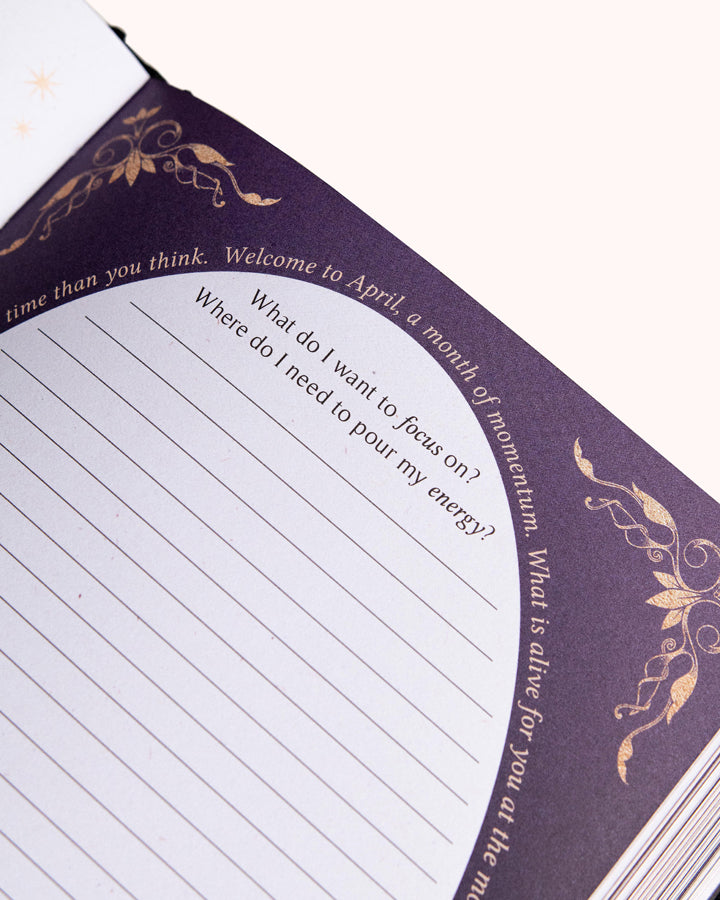 time than you think. Welcome to April, a month of momentum. What is alive for you at the
What do I want to focus on?
Where do I need to pour my energy?